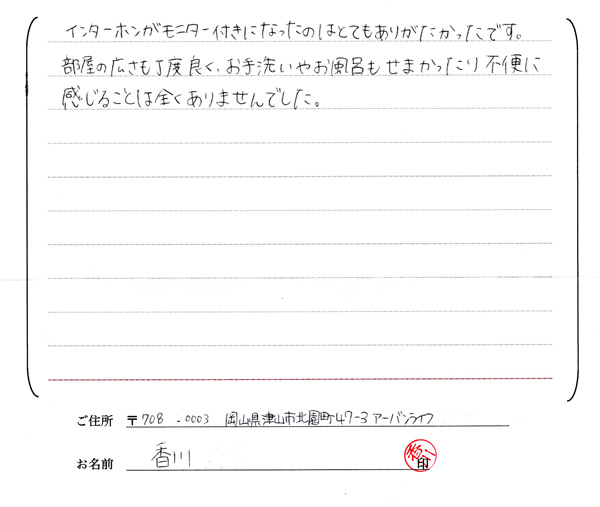 インターホンがモニター付きになったのはとてもありがたかったです。
部屋の広さも丁度良く、お手洗いやお風呂もせまかったり不便に
感じることは全くありませんでした。
ご住所 〒708-0003 岡山県津山市北園町47-3 アーバンライフ
お名前 香川 印